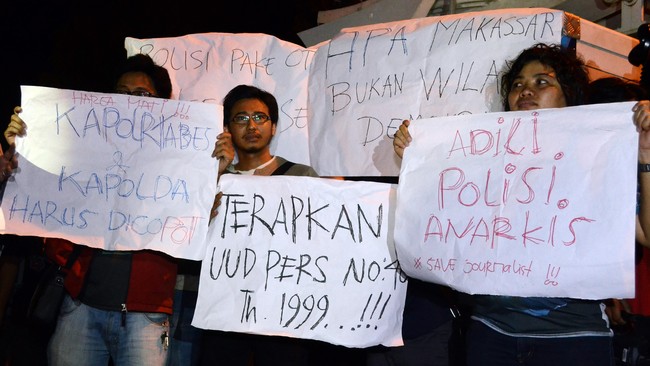 POLISI PAKE OT
SE
HPA MAKASSAR
BUKAN WILA
DE
HARGA MATI !!!
KAPOLRTABES
&
KAPOLDA
HARUS DICOPOT
TERAPKAN
UUD PERS NO: 4
Th. 1999...!!!
ADiLi
POLiSi.
ANARKiS
* SAVE JOURNALiST !!!